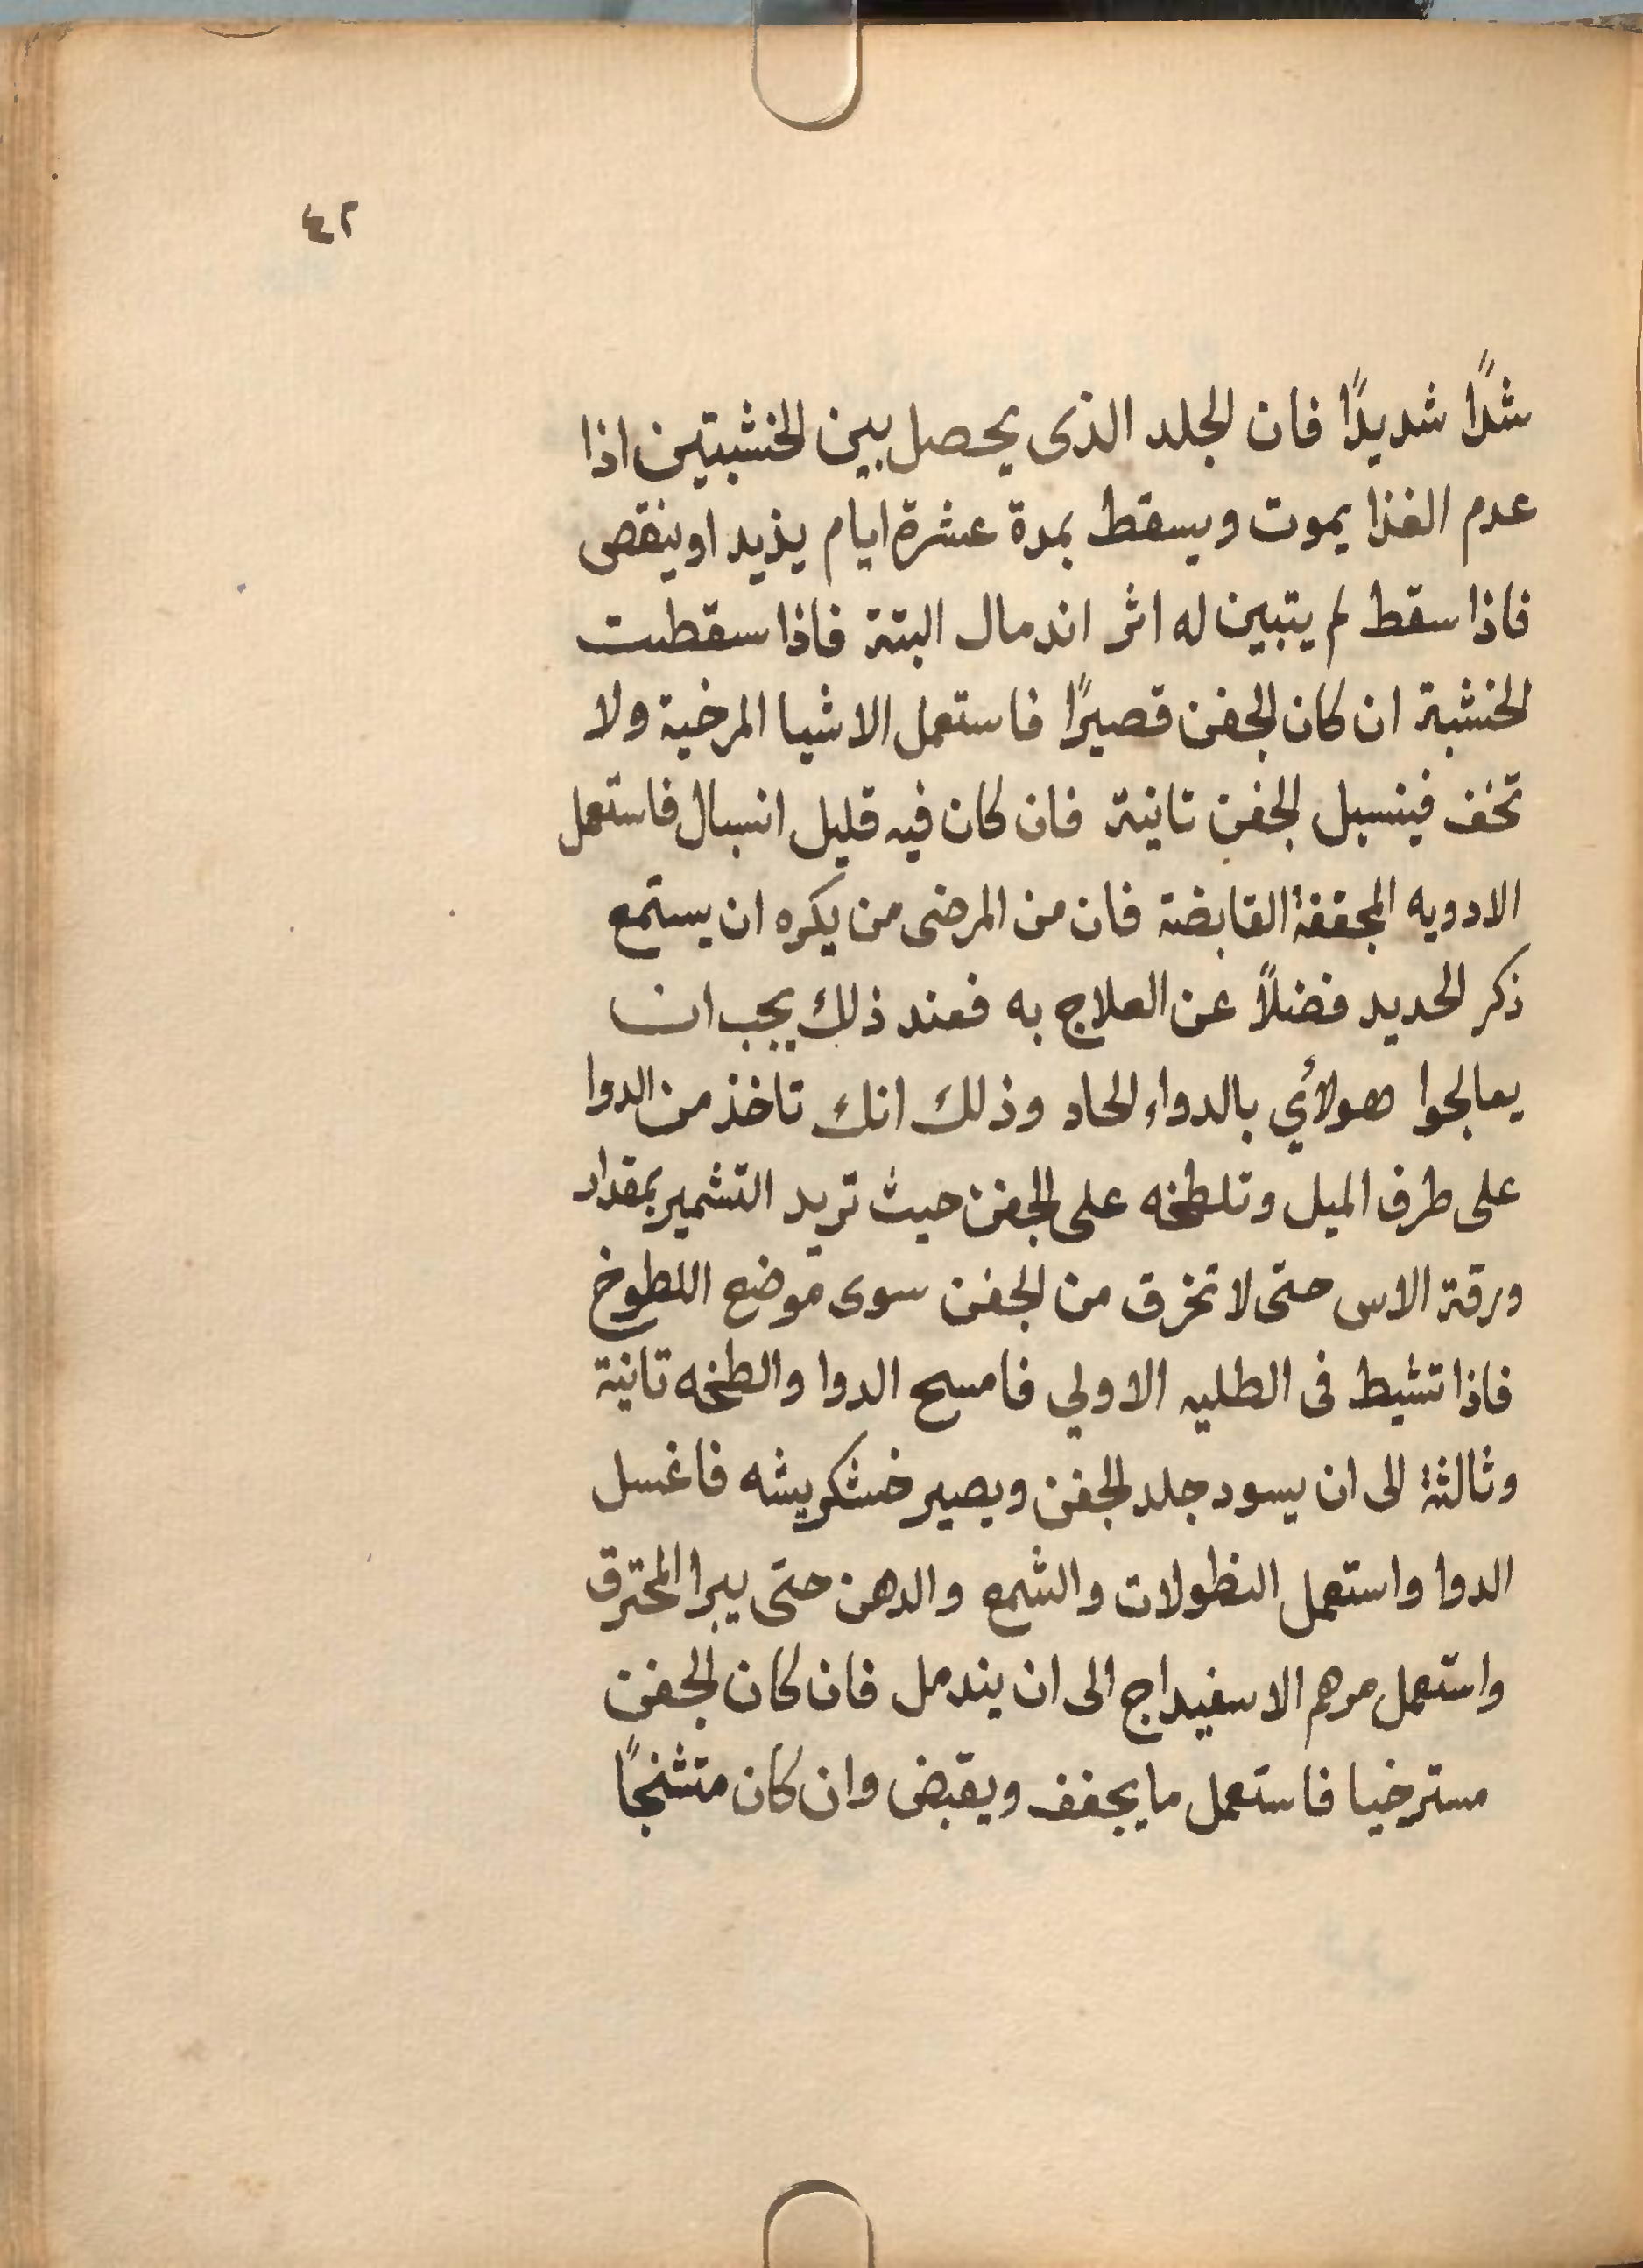 ٤٢
شدًا شديدًا فان الجلد الذى يحصل بين الخشبتين اذا
عدم الغذا يموت ويسقط بمدة عشرة ايام يذيد او ينقص
فاذا سقط لم يتبين له اثر اندمال البتة فاذا سقطت
الخشبة ان كان الجفن قصيرًا فاستعمل الاشيا المرخية ولا
تخف فينسبل الجفن تانية فان كان فيه قليل انسبال فاستعمل
الادويه المجففة القابضة فان من المرضى من يكره ان يستمع
ذكر الحديد فضلاً عن العلاج به فعند ذلك يجب ان
يعالجوا هولأي بالدواء الحاد وذلك انك تاخذ من الدوا
على طرف الميل وتلطخه على الجفن حيث تريد التشمير بمقدار
ورقة الاس حتى لا تخرق من الجفن سوى موضع اللطوخ
فاذا تشيط فى الطليه الاولي فامسح الدوا والطخه تانية
وثالثة الى ان يسود جلد الجفن ويصير خشكريشه فاغسل
الدوا واستعمل النطولات والشمع والدهن حتى يبرا المحترق
واستعمل مرهم الاسفيداج الى ان يندمل فان كان الجفن
مسترخيا فاستعمل ما يجفف ويقبض وان كان متشنجًا